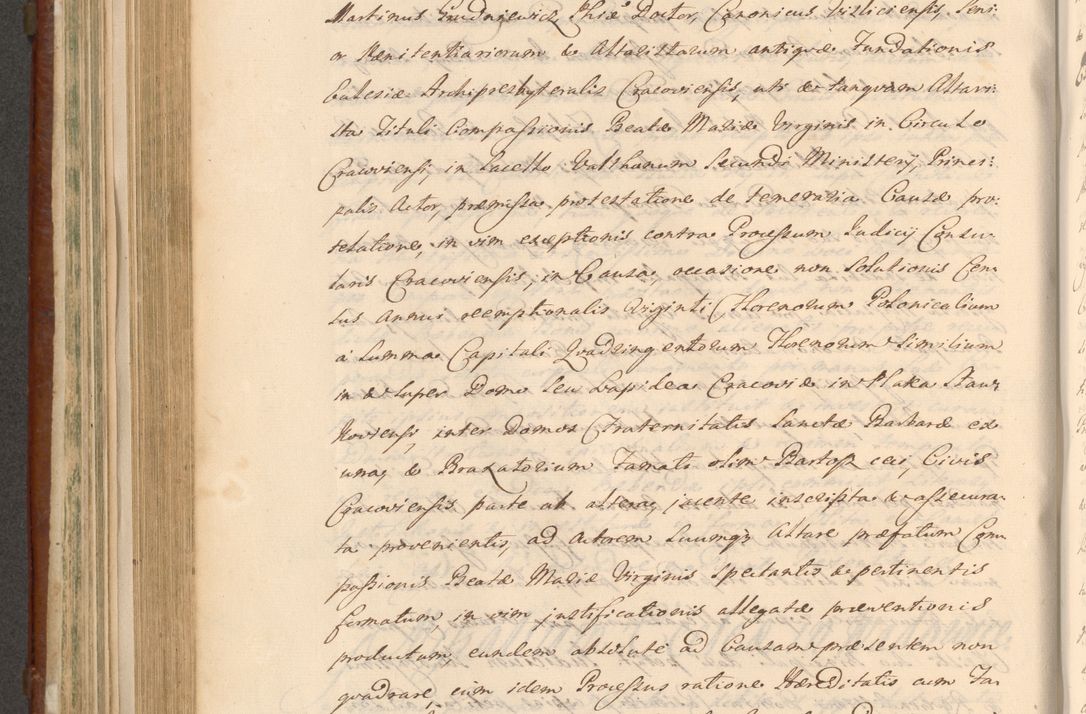 Martinus Grudniewicz Phiæ Doctor, Canonicus Visliciensis, Seni-
or Pænitentiariorum & Altaristarum antiquæ Fundationis
Eclesiæ Archipresbyteralis Cracoviensis, uti & tanquam Altari-
sta Tituli Compassionis Beatæ Mariæ Virginis in Circulo
Cracoviensi, in Sacello Secundi Ministerij, Princi-
palis Actor, præmissa protestatione de temeraria Causæ pro-
telatione, in vim exceptionis contra Processum Judicij Consu-
laris Cracoviensis, in Causa, occasione non Solutionis Cen-
sus Annui reemptionalis Viginti Florenorum Polonicalium
à Summa Capitali Quadringentorum Florenorum Similium
in & Super Domo Seu Lapidea Cracoviæ in Platea Slaw-
koviensi, inter Domos Fraternitatis Sanctæ Barbaræ ex
una, & Braxatorium Famati olim Civis
Cracoviensis parte ab altera, jacente inscripta & assecura-
ta provenientis, ad Actorem Suumq; Altare præfatum Com-
passionis Beatæ Mariæ Virginis Spectantis & pertinentis
formatum, in vim justificationis allegatæ præventionis
productum, eundem absolute ad Causam præsentem non
quadrare, cum idem Processus ratione Hæreditatis cum Fa-